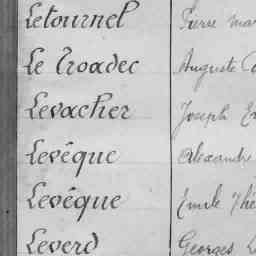 Letournel Pierre
Le Troadec Auguste
Levacher Joseph
Levêque Alexandre
Levêque Emile
Leverd Georges